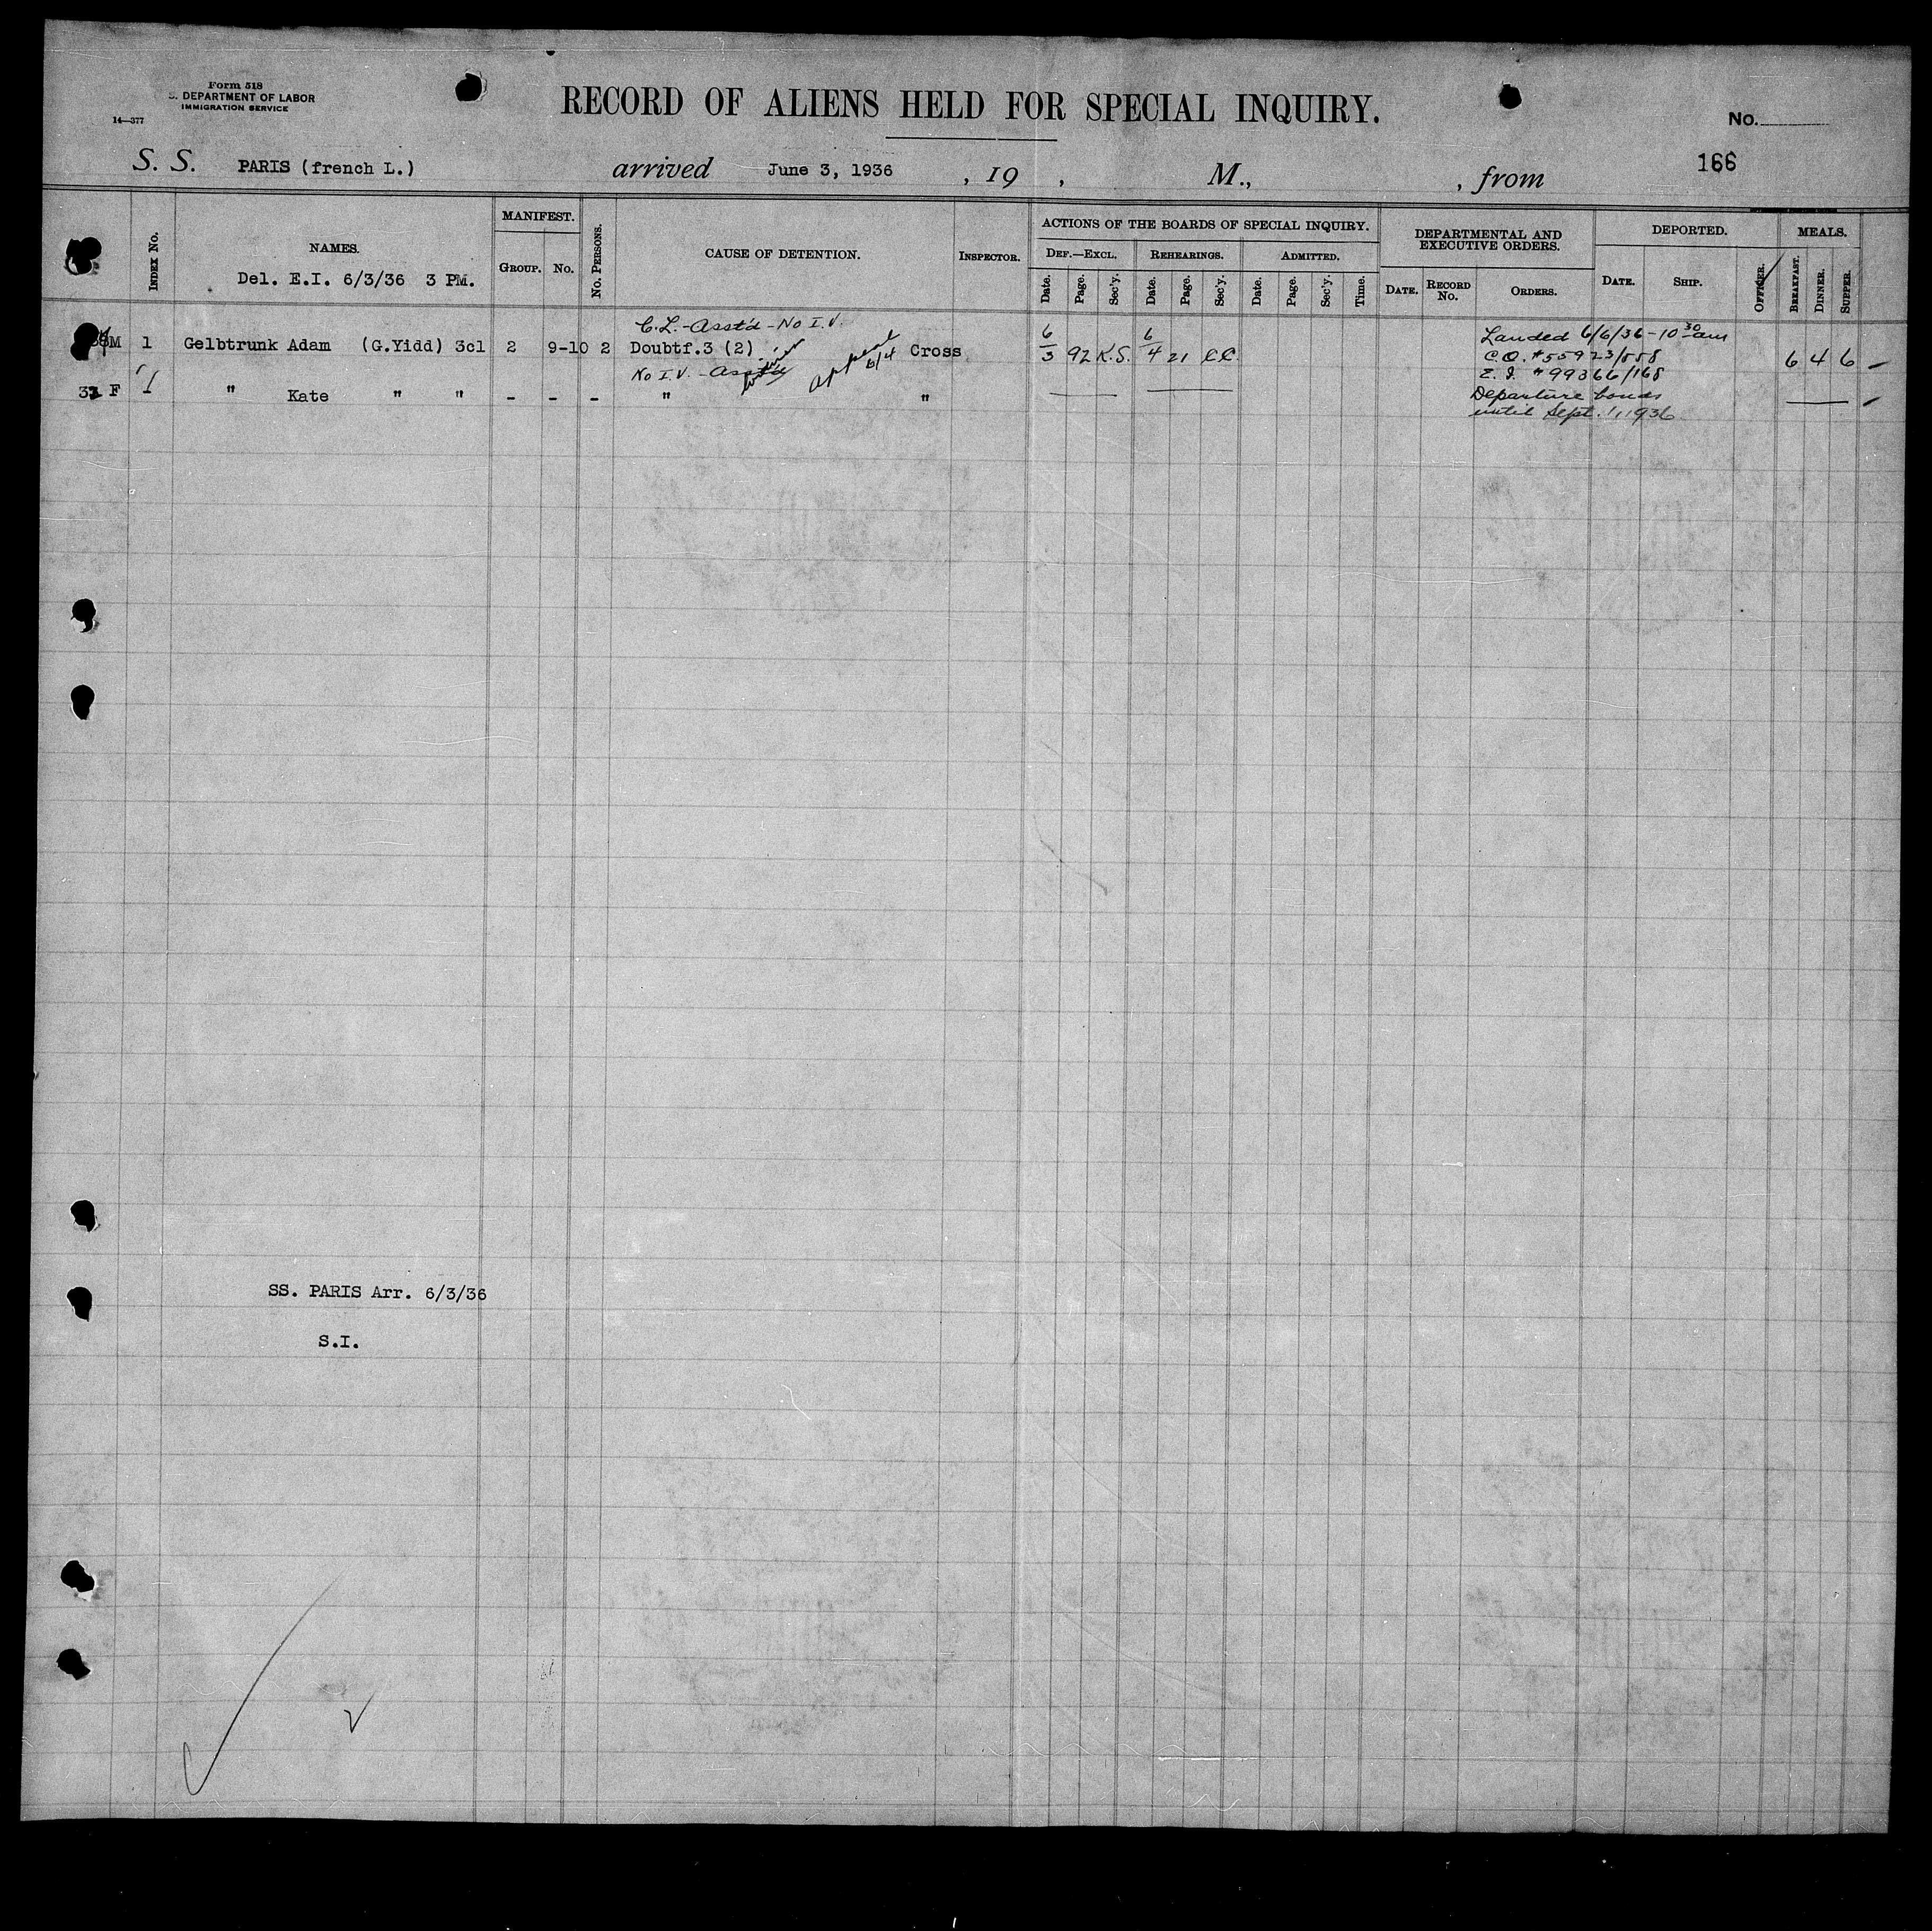 Form 518
S. DEPARTMENT OF LABOR
IMMIGRATION SERVICE
14—377
RECORD OF ALIENS HELD FOR SPECIAL INQUIRY.
No.
166
S. S. PARIS (french L.) arrived June 3, 1936 , 19 , M., , from
INDEX No.
NAMES.
Del. E.I. 6/3/36 3 PM.
MANIFEST.
GROUP. No.
No. PERSONS.
CAUSE OF DETENTION.
INSPECTOR.
ACTIONS OF THE BOARDS OF SPECIAL INQUIRY.
DEF.—EXCL. REHEARINGS. ADMITTED.
Date. Page. Sec'y. Date. Page. Sec'y. Date. Page. Sec'y. Time.
DEPARTMENTAL AND
EXECUTIVE ORDERS.
DATE. RECORD No. ORDERS.
DEPORTED.
DATE. SHIP. OFFICER.
MEALS.
BREAKFAST. DINNER. SUPPER.
C.L.-Asst'd-No I.V.
M 1 Gelbtrunk Adam (G.Yidd) 3cl 2 9-10 2 Doubtf.3 (2) appeal 6/4 Cross 6/3 92 K.S. 6/4 21 C.C. 6 4 6
No I.V. - Asst'd
F 1 " Kate " " - - - " "
Landed 6/6/36-10 30 am
C.O. #55923/558
E.I. #99366/168
Departure bonds
until Sept. 1, 1936
SS. PARIS Arr. 6/3/36
S.I.